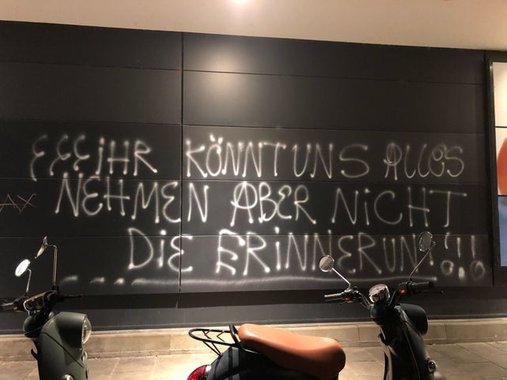 EEEiHR KÖNNT UNS ALLES
AX
NEHMEN ABER NiCHT
DiE ERiNNERUN!!!